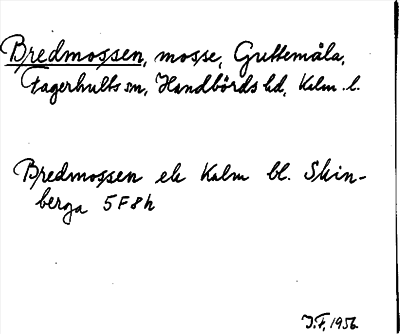 Bredmossen, mosse, Guttemåla,
Fagerhults sn, Handbörds hd, Kalm. l.
Bredmossen ek Kalm bl. Skin-
berga 5F8h
J.F. 1956